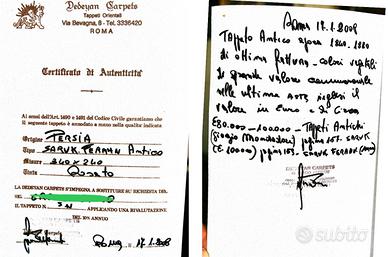 Dedeyan Carpets
Tappeti Orientali
Via Bevagna, 8 - Tel. 3336420
ROMA
Certificato di Autenticità
Ai sensi dell'Art. 1490 e 1491 del Codice Civile garantiamo che
il seguente tappeto è annodato a mano nella qualità indicata
Origine PERSIA
Tipo SARUK FERAHN ANTICO
Misure 340x240
Disegno Rosato
LA DEDEYAN CARPETS S'IMPEGNA A SOSTITUIRE SU RICHIESTA DEL
IL TAPPETO N. APPLICANDO UNA RIVALUTAZIONE
DEL 10% ANNUO
Roma 17.1.2008
Roma 17.1.2008
Tappeto Antico epoca 1860.1880
di ottima fattura - colori vegetali
di grande valore commerciale
nelle ultime
valore in euro e di Circa
€80.000 - 100.000 - Tappeti Antichi
(Mondadori) pagina 167. SARUK
(E. 10000) pagina 163. SARUK FERAHN
DEDEYAN CARPETS
subito